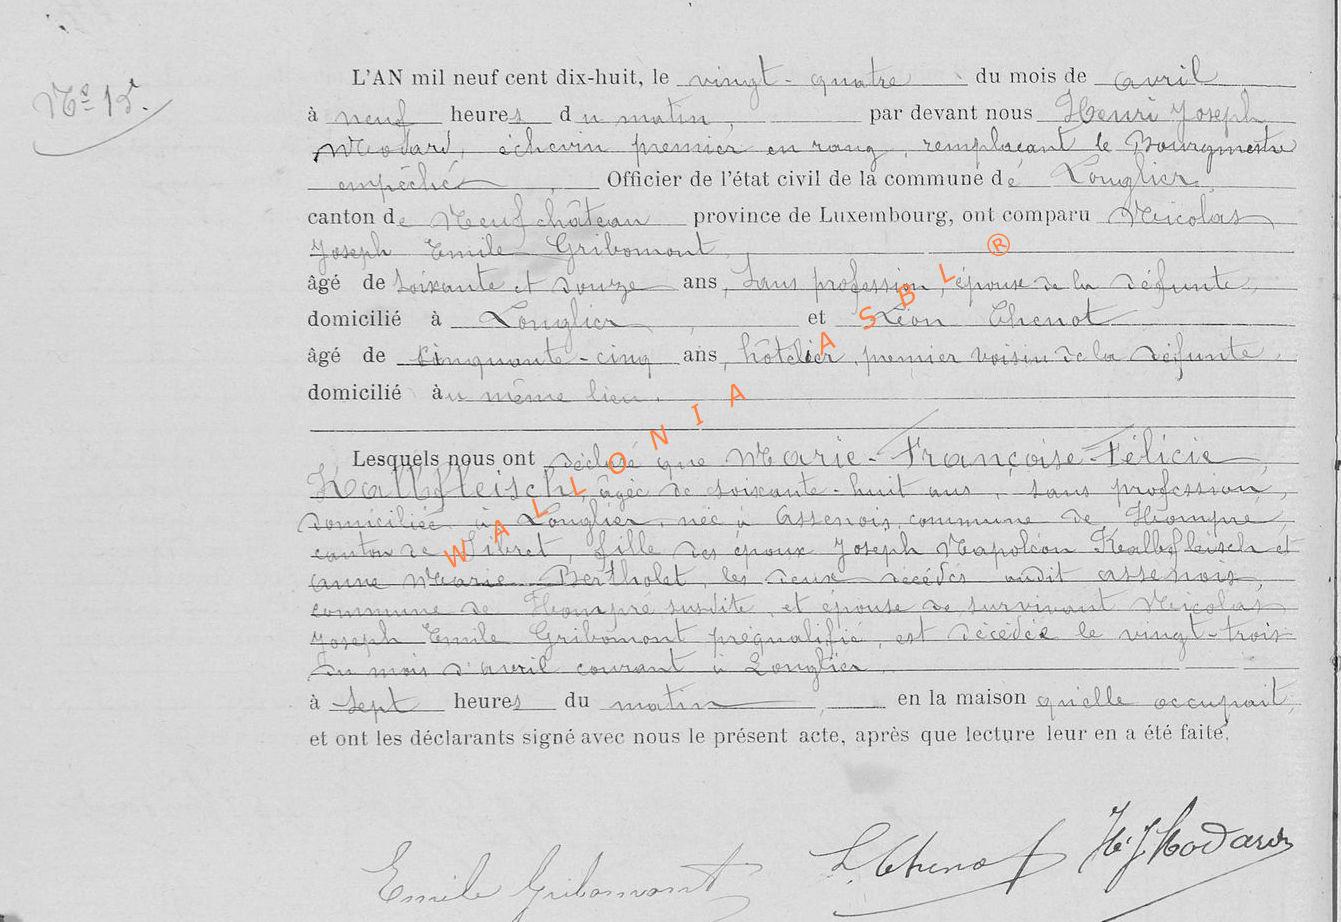 Nº 15.
L'AN mil neuf cent dix-huit, le vingt-quatre du mois de avril
à neuf heures du matin, par devant nous Henri Joseph
Modard, échevin premier en rang, remplaçant le Bourgmestre
empêché, Officier de l'état civil de la commune de Longlier,
canton de Neufchâteau province de Luxembourg, ont comparu Nicolas
Joseph Emile Gribomont,
âgé de soixante et douze ans, sans profession, époux de la défunte,
domicilié à Longlier, et Léon Thenot
âgé de cinquante-cinq ans, hôtelier, premier voisin de la défunte,
domicilié au même lieu.
Lesquels nous ont déclaré que Marie-Françoise-Félicie
Kalbfleisch, âgée de soixante-huit ans, sans profession,
domiciliée à Longlier, née à Assenois, commune de Hompré,
canton de Sibret, fille des époux Joseph Napoléon Kalbfleisch et
Anne Marie Bertholet, les deux décédés audit Assenois,
commune de Hompré susdite, et épouse de survivant Nicolas
Joseph Emile Gribomont préqualifié, est décédée le vingt-trois
du mois d'avril courant à Longlier,
à sept heures du matin, en la maison qu'elle occupait,
et ont les déclarants signé avec nous le présent acte, après que lecture leur en a été faite.
Emile Gribomont L. Thenot H. J. Modard
WALLONIA ASBL ®